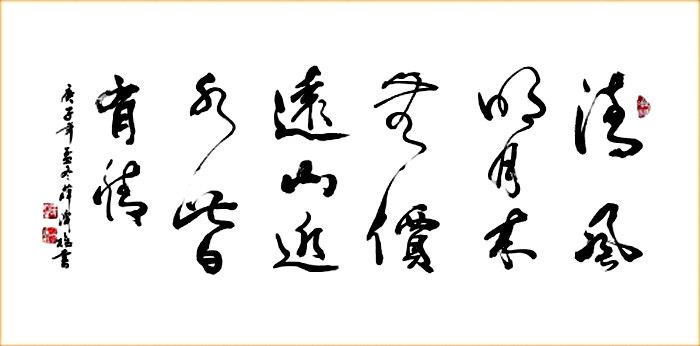 清風
明月本
無價
遠山近
水皆
有情
庚子年孟冬薛 書